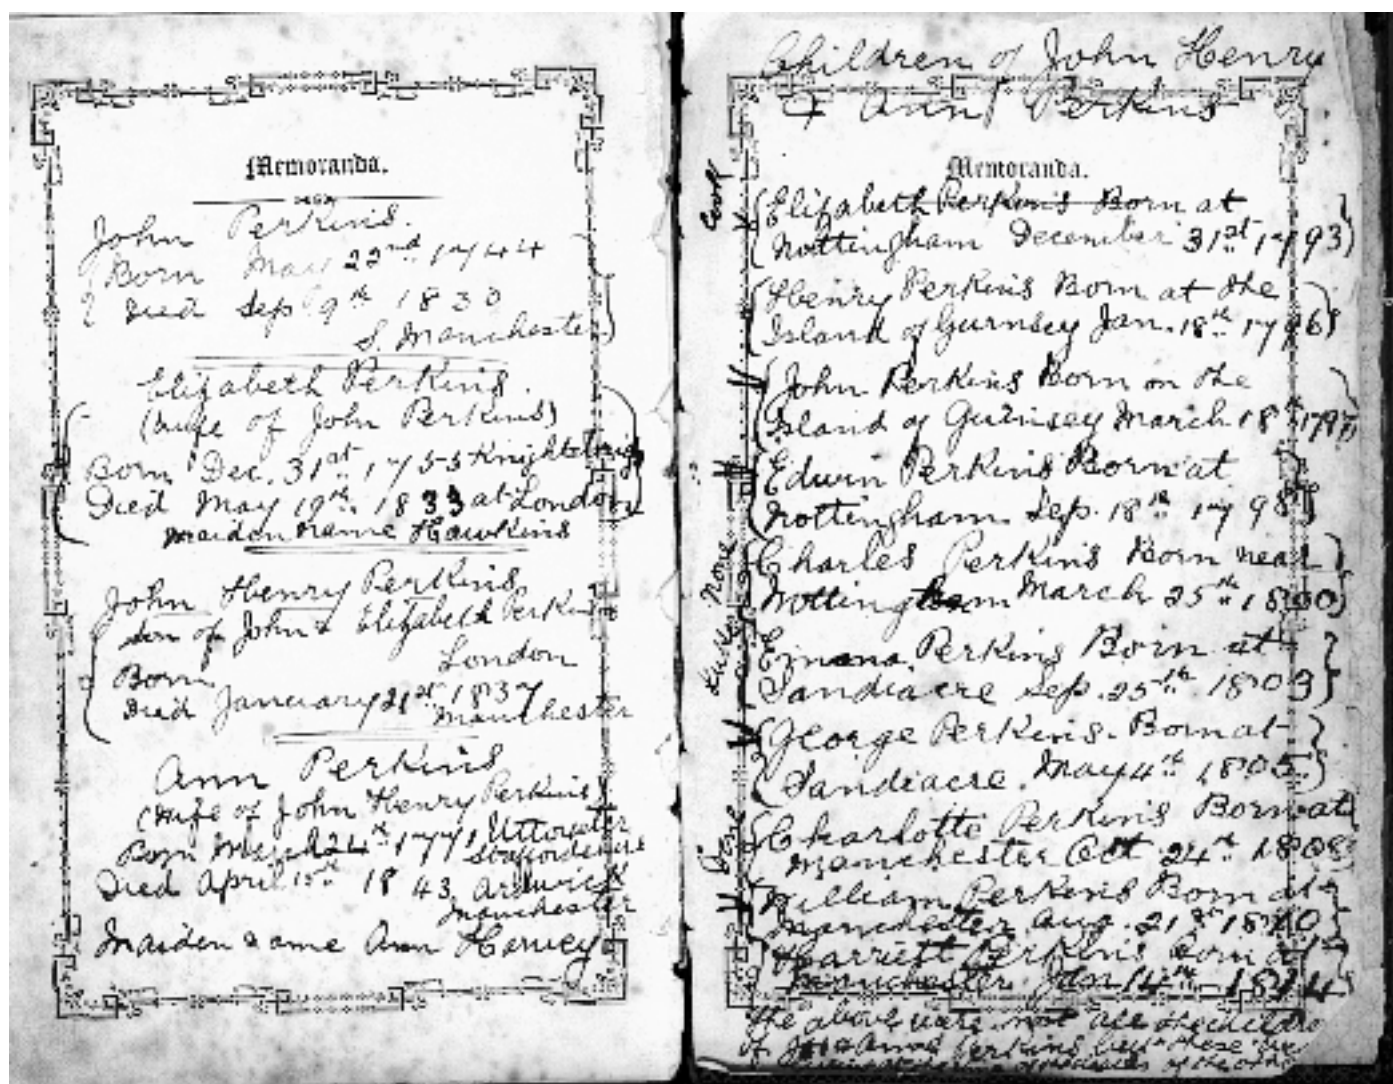 Memoranda.
John Perkins.
Born May 22nd 1744
Died Sep 9th 1830
S. Manchester
Elizabeth Perkins.
(wife of John Perkins)
Born Dec. 31st 1755 Knightsbrig
Died May 19th 1833 at London
maiden name Hawkins
John Henry Perkins
son of John & Elizabeth Perkins
London
Born
Died January 21st 1837
Manchester
Ann Perkins
(wife of John Henry Perkins)
Born March 24th 1771 Uttoxeter
Staffordshire
Died April 15th 1843 Ardwick
Manchester
Maiden name Ann Harvey
Children of John Henry
& Ann Perkins
Memoranda.
Elizabeth Perkins Born at
Nottingham December 31st 1793
Henry Perkins Born at the
Island of Gurnsey Jan. 18th 1796
John Perkins Born on the
Island of Guernsey March 18th 1797
Edwin Perkins Born at
Nottingham Sep. 18th 1798
Charles Perkins Born near
Nottingham March 25th 1800
Emma Perkins Born at
Sandiacre Sep. 25th 1803
George Perkins. Born at
Sandiacre. May 4th 1805.
Charlotte Perkins Born at
Manchester Oct 24th 1808
William Perkins Born at
Manchester Aug. 21st 1810
Harriett Perkins Born at
Manchester. Jan 14th 1814
The above were not all the children
of Perkins but these are
of the